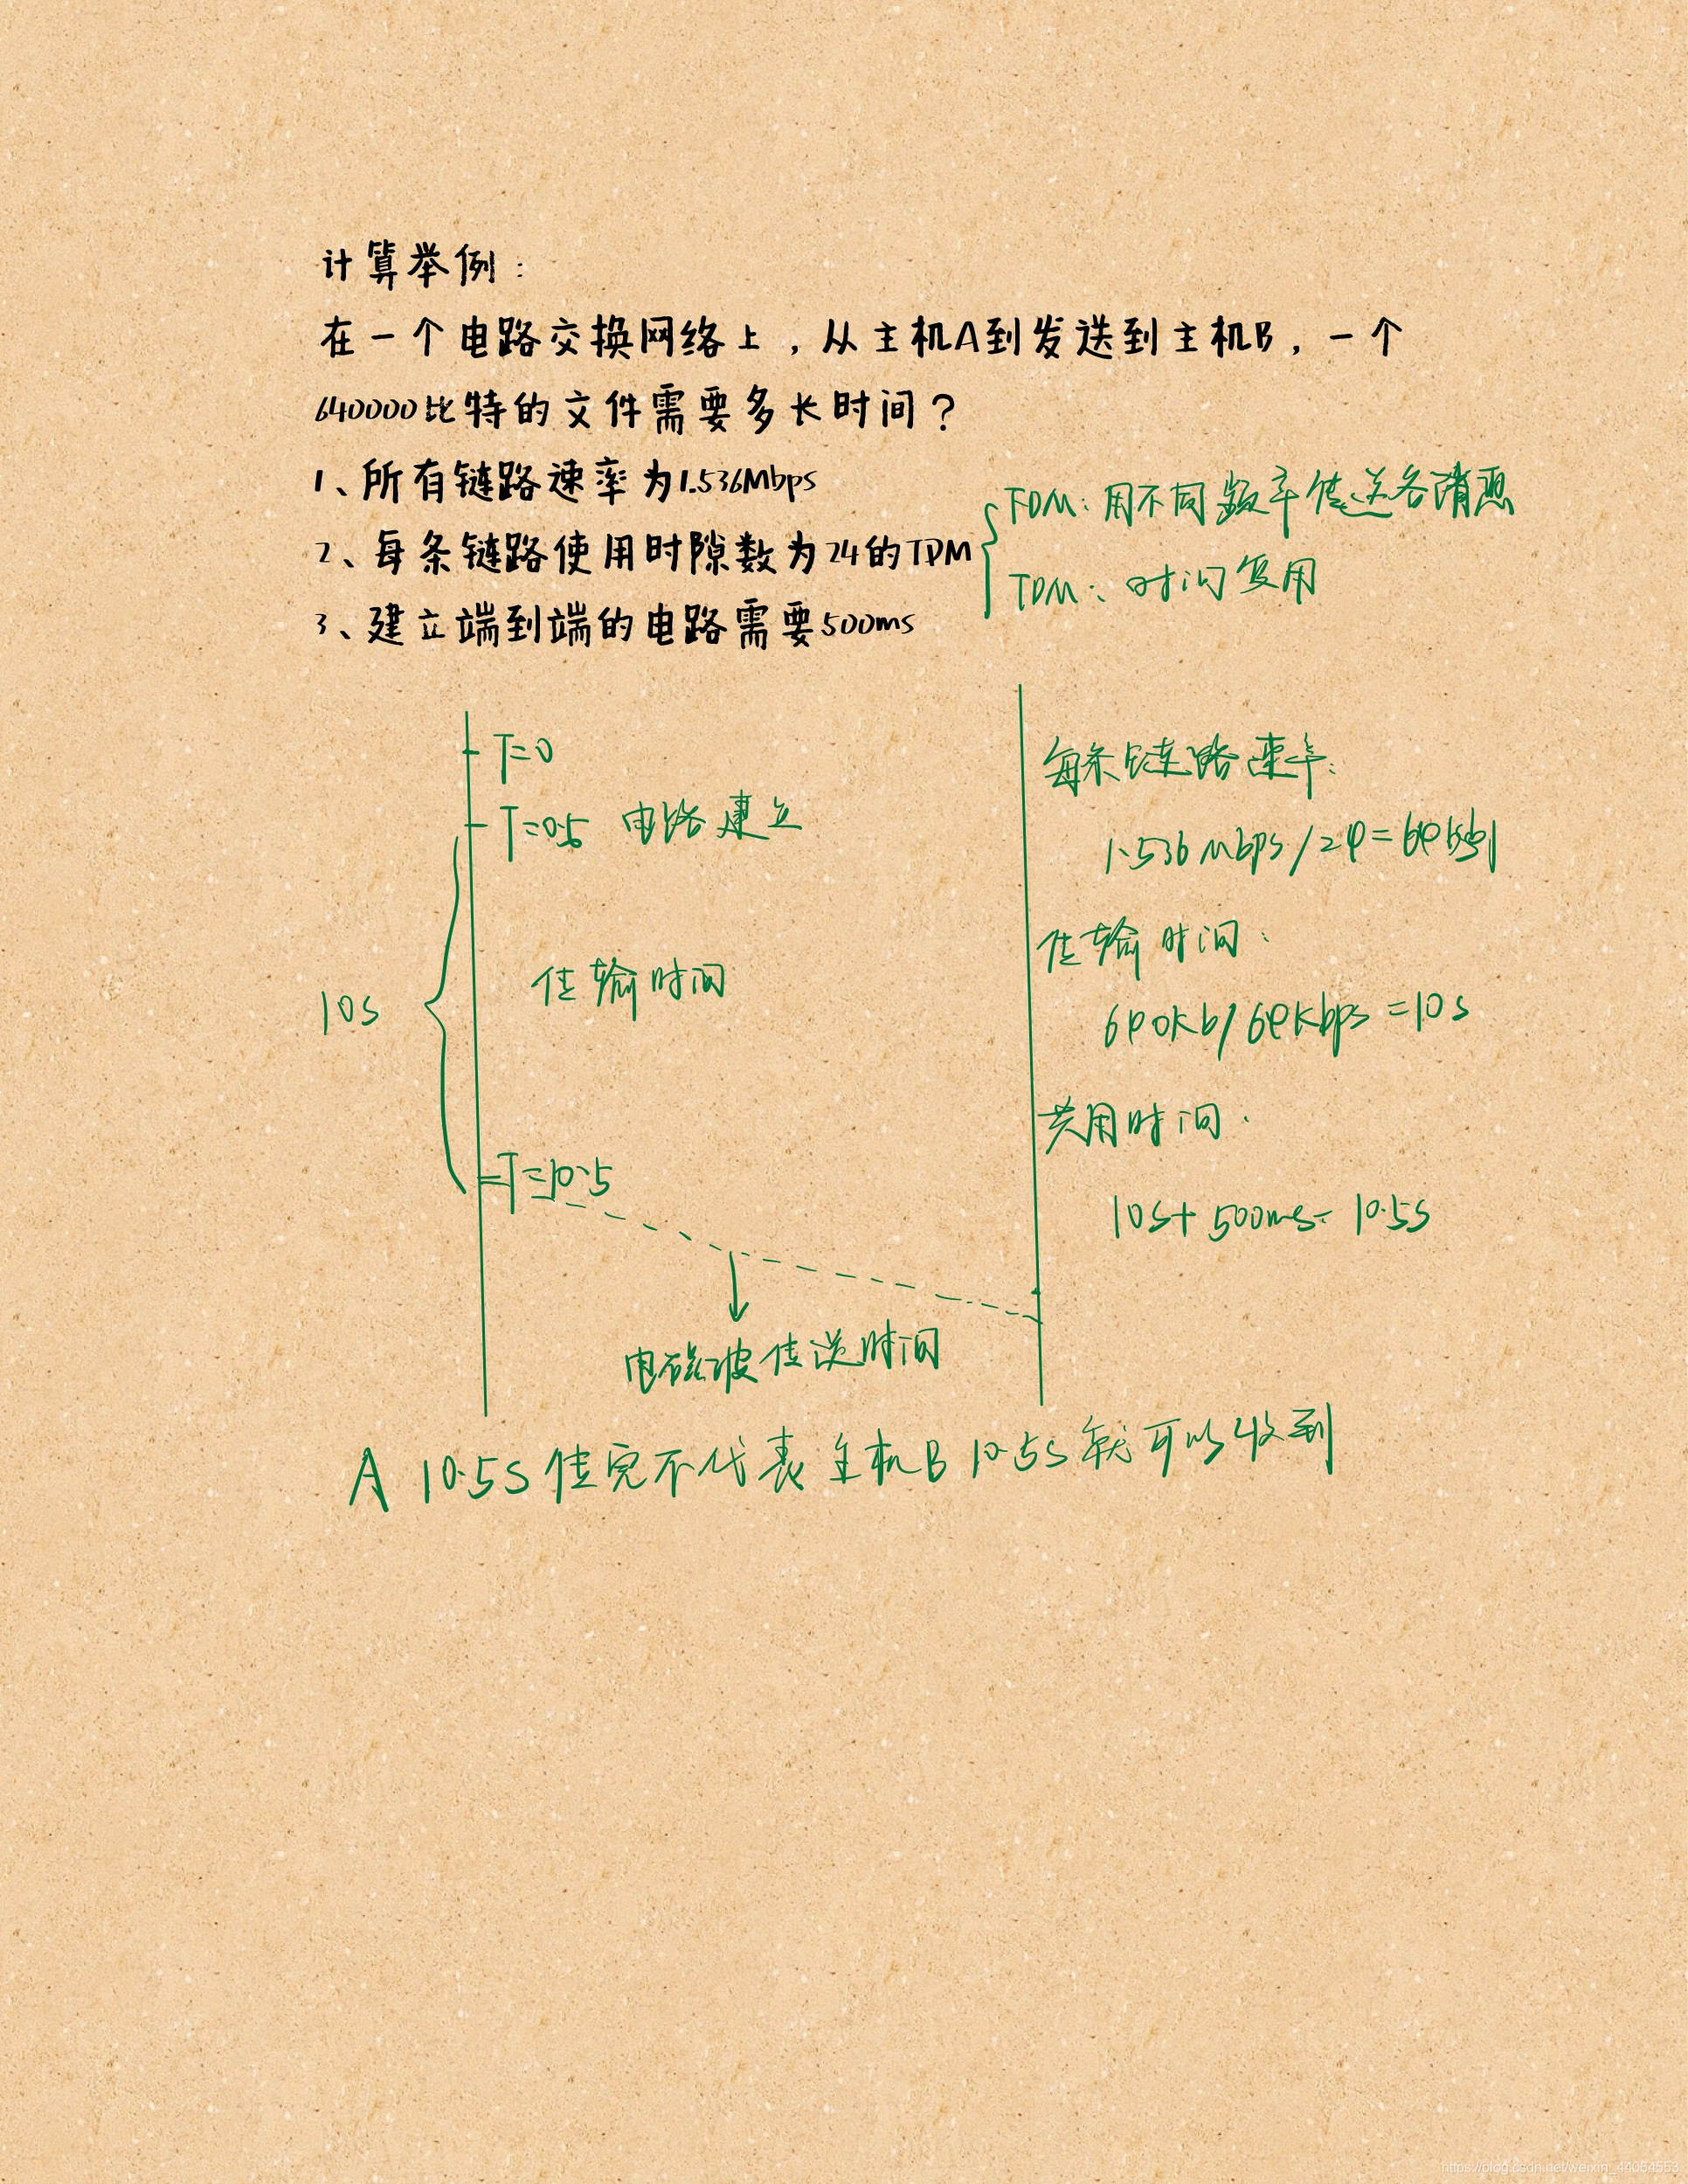 计算举例：
在一个电路交换网络上，从主机A到发送到主机B，一个
640000比特的文件需要多长时间？
1、所有链路速率为1.536Mbps
2、每条链路使用时隙数为24的TDM
3、建立端到端的电路需要500ms
FDM：用不同频率传送各消息
TDM：时间复用
T=0
T=0.5 电路建立
10s
传输时间
T=10.5
电磁波传送时间
每条链路速率：
1.536Mbps/24=64kbps
传输时间：
640kb/64kbps=10s
共用时间：
10s+500ms=10.5s
A 10.5s传完不代表主机B 10.5s就可以收到
https://blog.csdn.net/weixin_44064553